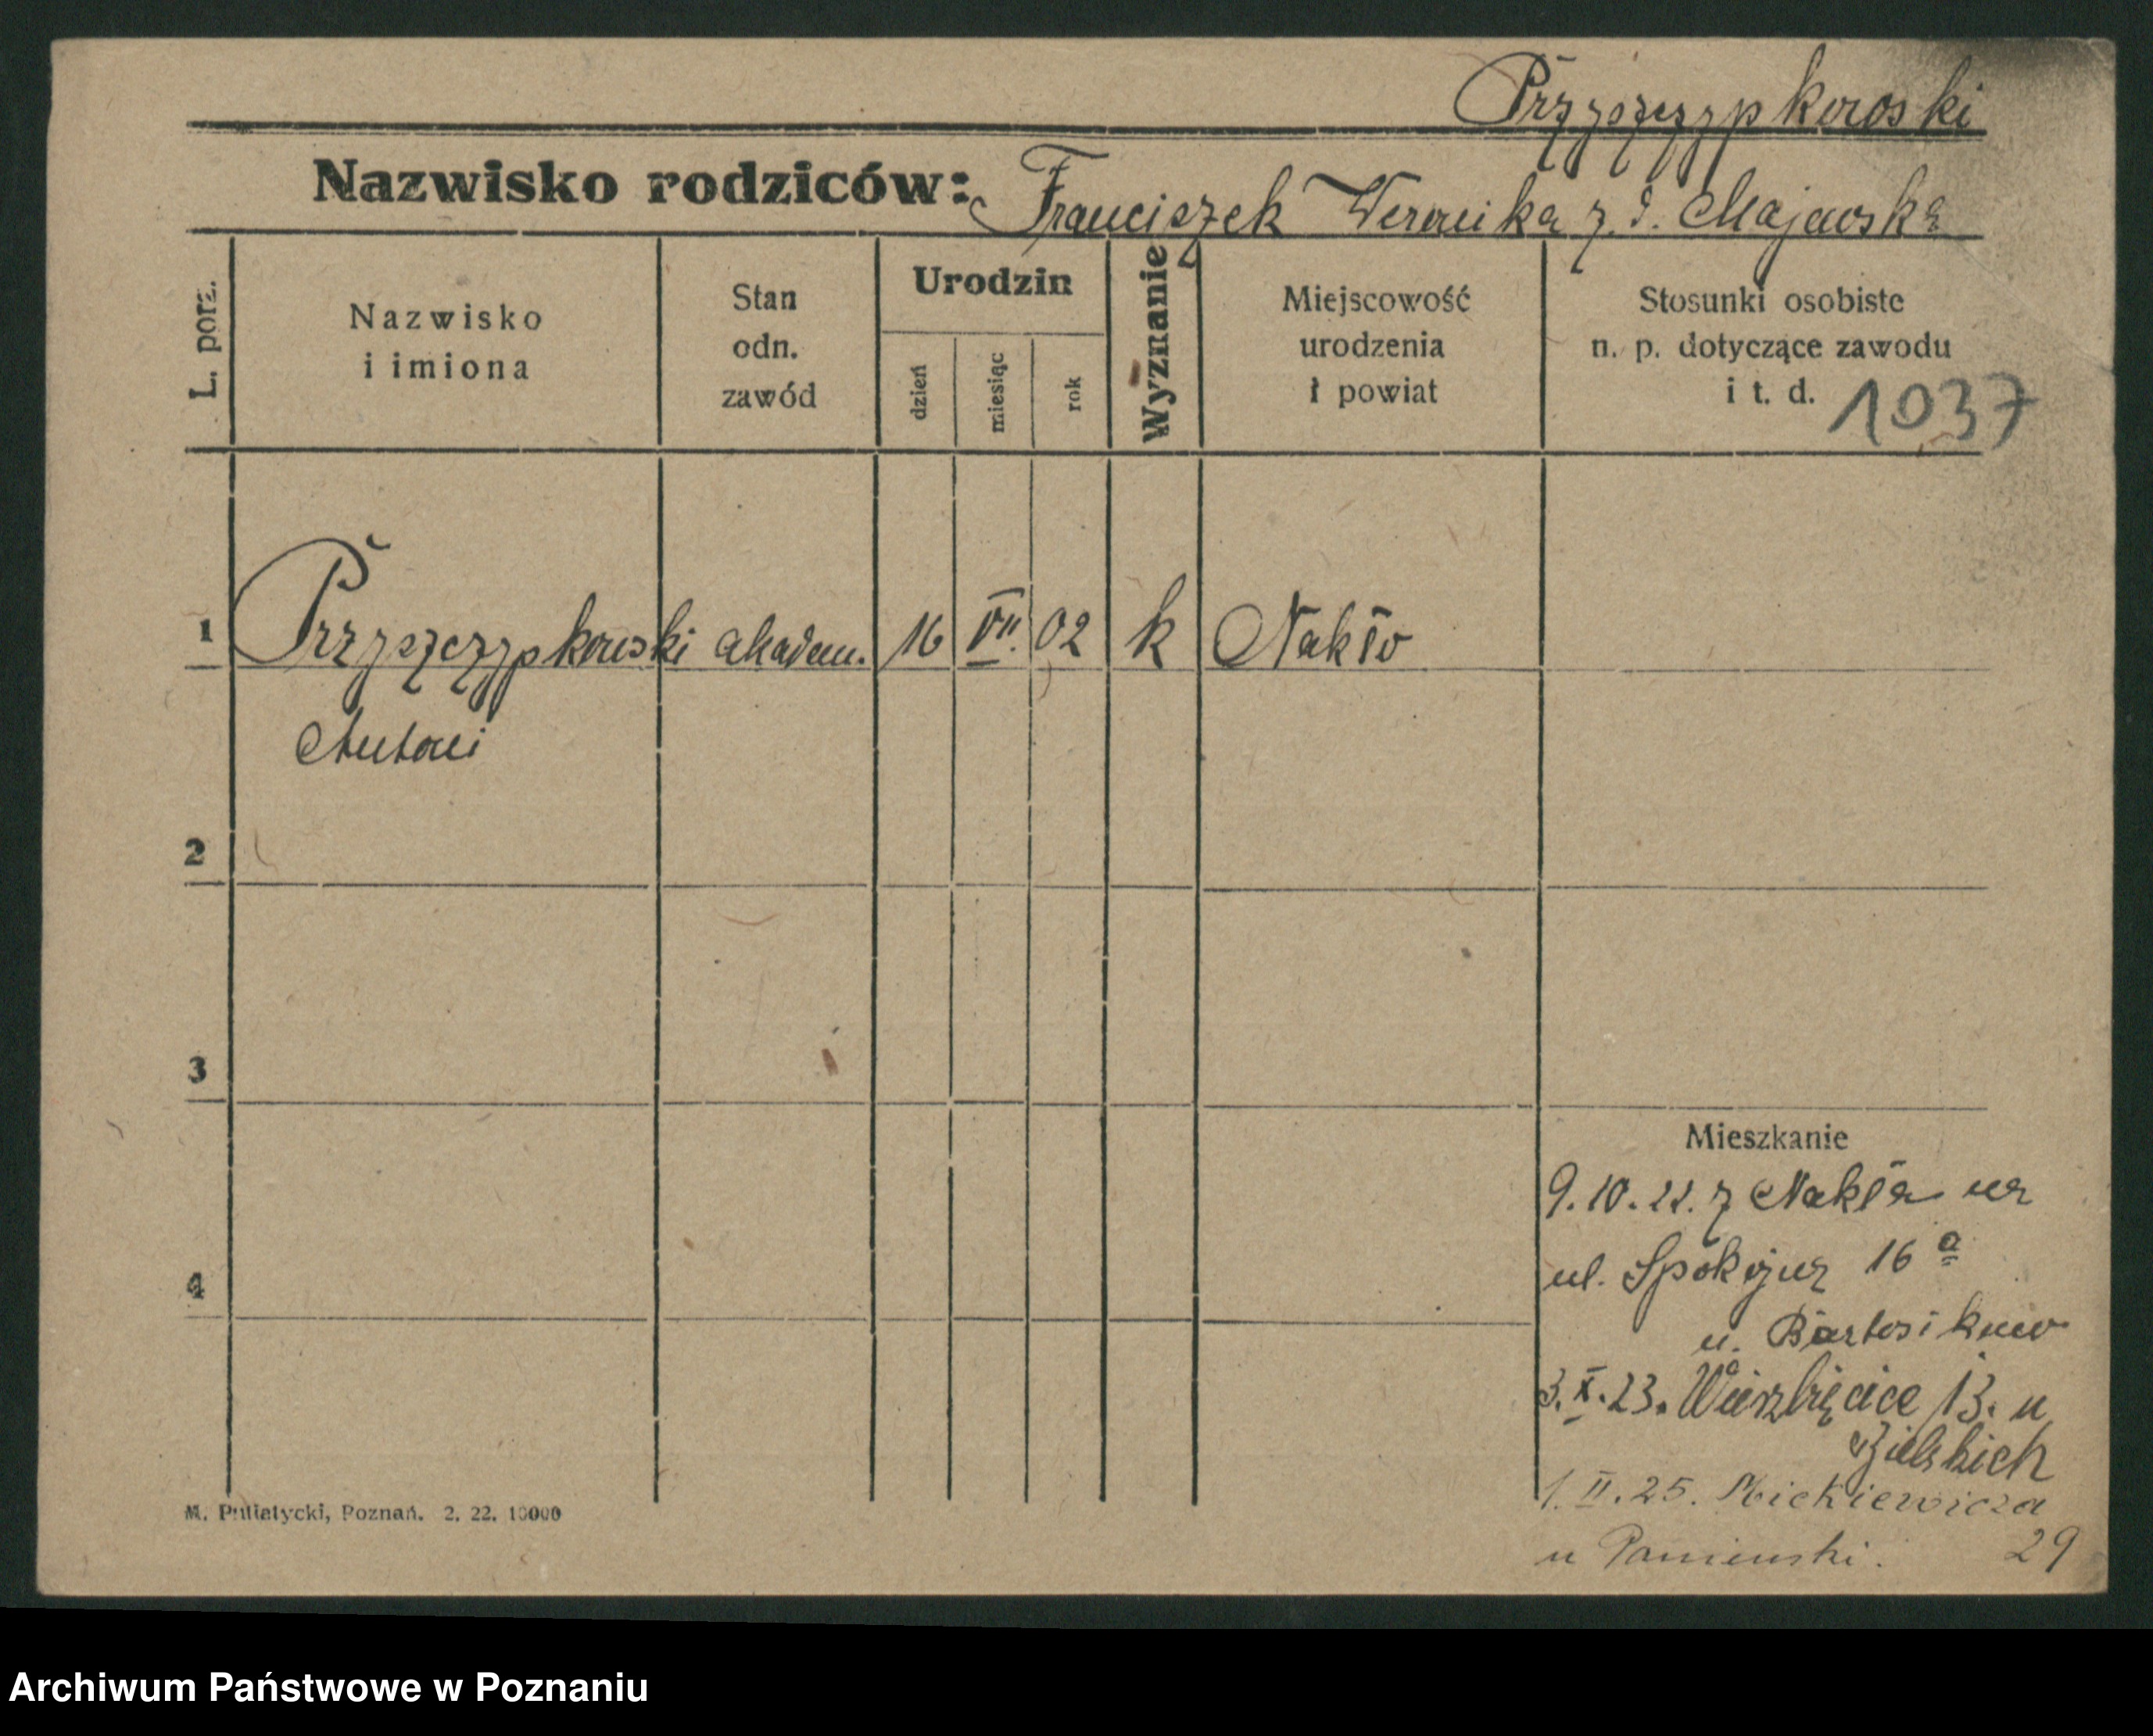 Przyszczypkowski
Nazwisko rodziców: Franciszek Weronika z. d. Majewska
L. porz.
Nazwisko
i imiona
Stan
odn.
zawód
Urodzin
dzień
miesiąc
rok
Wyznanie
Miejscowość
urodzenia
i powiat
Stosunki osobiste
n. p. dotyczące zawodu
i t. d. 1037
1 Przyszczypkowski akadem. 16 VII. 02 k Nakło
Antoni
2
3
4
Mieszkanie
9.10.22. z Nakła na
ul. Spokojną 16 a
u.
3.X.23. Wierzbięcice 13. u
Bielskich
1.II.25. Mickiewicza
u 29
M. Putiatycki, Poznań. 2. 22. 10000
Archiwum Państwowe w Poznaniu